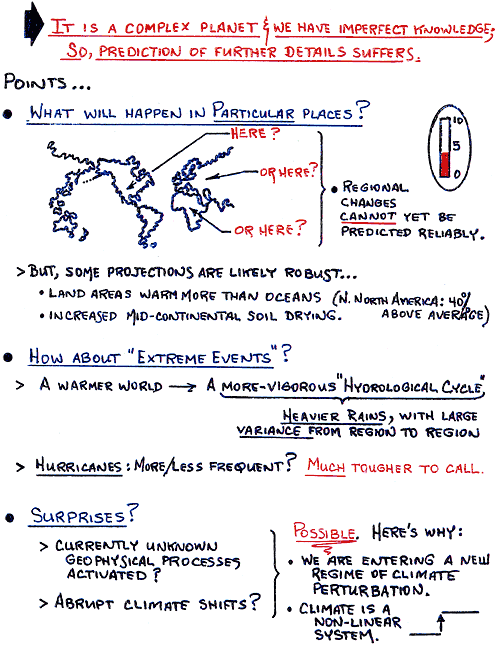 IT IS A COMPLEX PLANET & WE HAVE IMPERFECT KNOWLEDGE;
SO, PREDICTION OF FURTHER DETAILS SUFFERS.
POINTS...
• WHAT WILL HAPPEN IN PARTICULAR PLACES?
HERE?
OR HERE?
OR HERE?
10
5
0
• REGIONAL
CHANGES
CANNOT YET BE
PREDICTED RELIABLY.
> BUT, SOME PROJECTIONS ARE LIKELY ROBUST...
• LAND AREAS WARM MORE THAN OCEANS (N. NORTH AMERICA: 40%
ABOVE AVERAGE)
• INCREASED MID-CONTINENTAL SOIL DRYING.
• HOW ABOUT "EXTREME EVENTS"?
> A WARMER WORLD → A MORE-VIGOROUS "HYDROLOGICAL CYCLE",
HEAVIER RAINS, WITH LARGE
VARIANCE FROM REGION TO REGION
> HURRICANES: MORE/LESS FREQUENT? MUCH TOUGHER TO CALL.
• SURPRISES?
> CURRENTLY UNKNOWN
GEOPHYSICAL PROCESSES
ACTIVATED?
> ABRUPT CLIMATE SHIFTS?
POSSIBLE. HERE'S WHY:
• WE ARE ENTERING A NEW
REGIME OF CLIMATE
PERTURBATION.
• CLIMATE IS A
NON-LINEAR
SYSTEM.